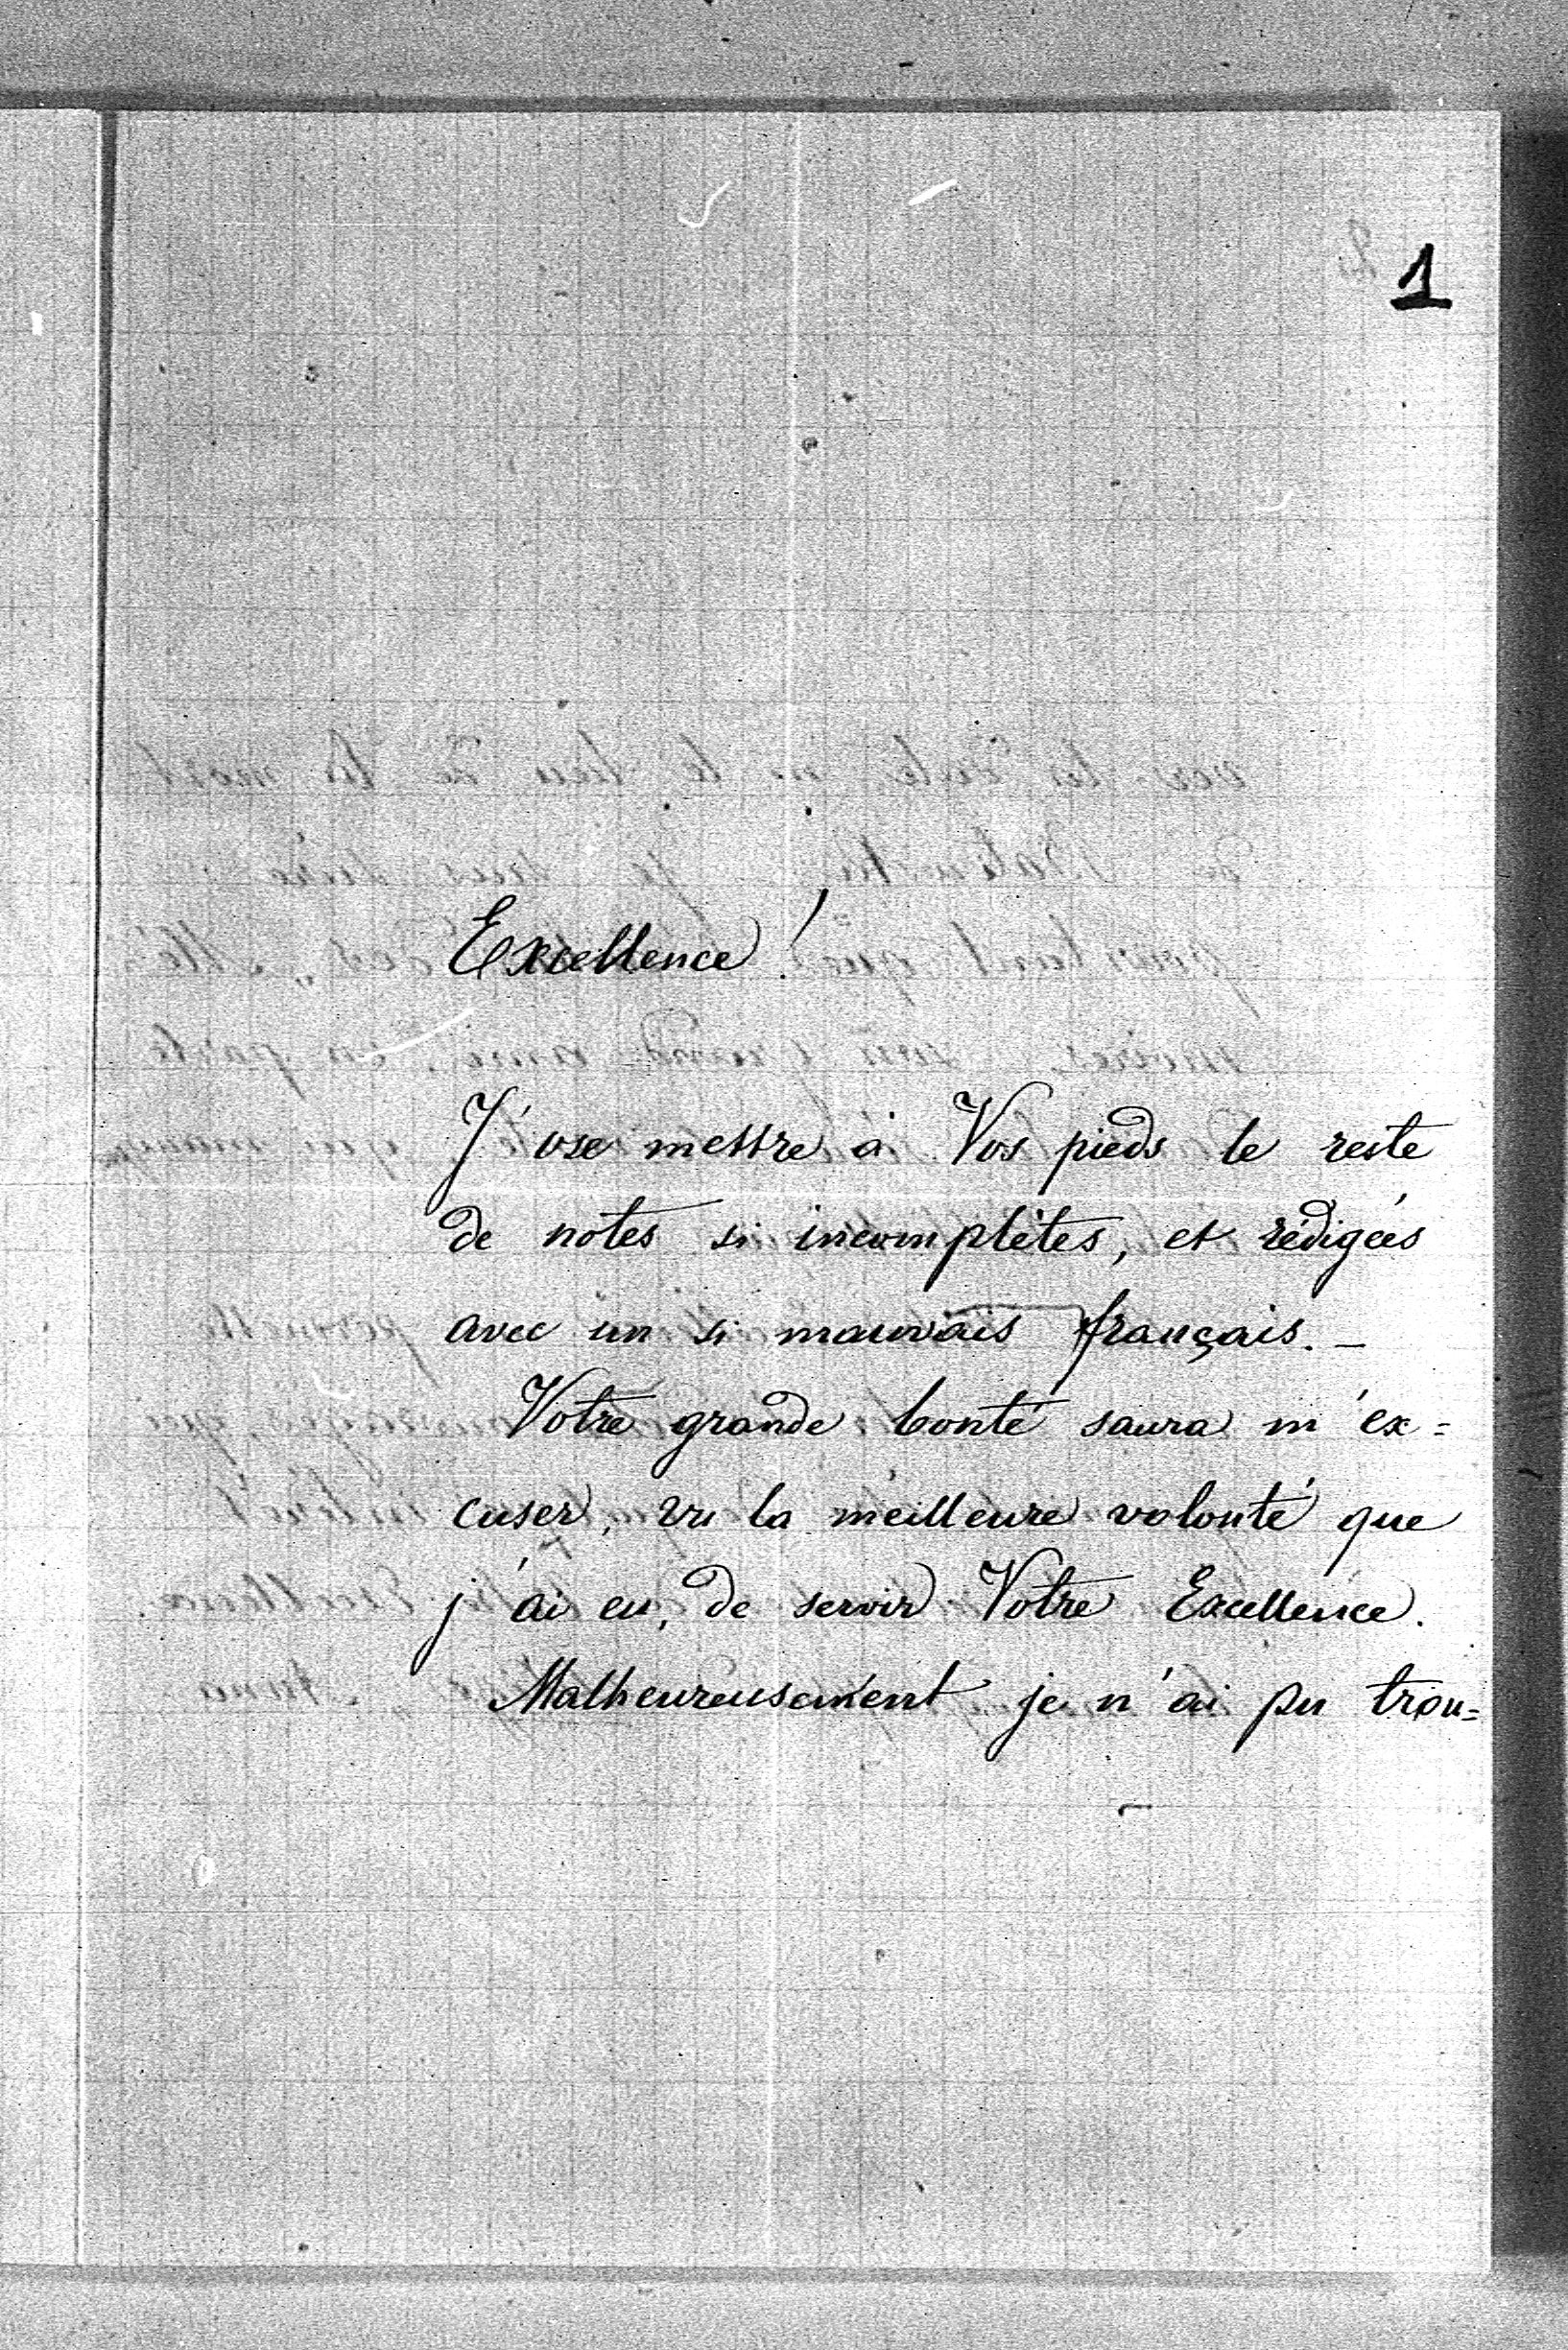 1
Excellence!
J'ose mettre à Vos pieds le reste
de notes si incomplètes, et rédigées
avec un si mauvais français. –
Votre grande bonté saura m'ex=
cuser, vu la meilleure volonté que
j'ai eu, de servir Votre Excellence.
Malheureusement je n'ai pu trou=